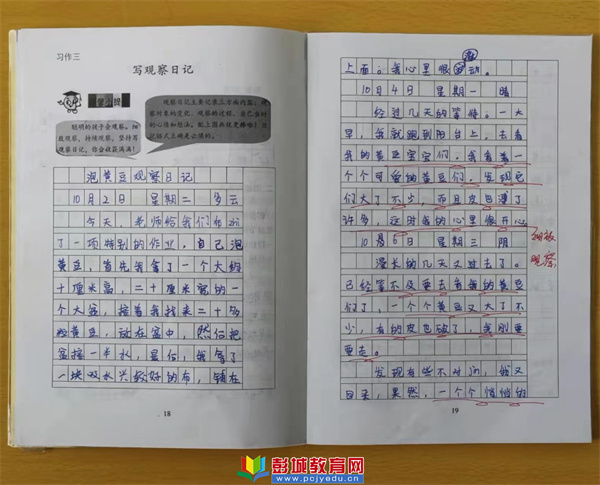 习作三
写观察日记
聪明的孩子会观察。细
致观察、持续观察，坚持写
观察日记，你会收获满满！
观察日记主要记录三方面内容：观
察对象的变化、观察的过程、自己当时
的心情和想法。配上图画就更棒啦！日
记格式正确是必须的。
泡黄豆观察日记
10月2日 星期二 多云
今天，老师给我们布加
了一项特别的作业，自己泡
黄豆，首先我拿了一个大约
十厘米高，二十厘米宽的一
个大盆，接着我找来二十多
粒黄豆，放在盆中，然后把
盆接一半水，最后，我拿了
一块吸水兴较好的布，铺在
18
上面。我心里很激动。
10月4日 星期一 晴
经过几天的等待。一大
早，我就跑到阳台上，去看
我的黄豆宝宝们，我看着一
个个可爱的黄豆们，发现它
们大了不少，而且皮也薄了
许多，这时我的心里很开心
10月6日 星期三 阴
细致
观察
漫长的几天又过去了。
已经等不及要去看我的黄豆
们了，一个个黄豆又大了不
少，有的皮也破了，我刚要
要走。
发现有些不对间，我又
回来，果然，一个个悄悄的
19
彭城教育网
www.pcjyedu.cn